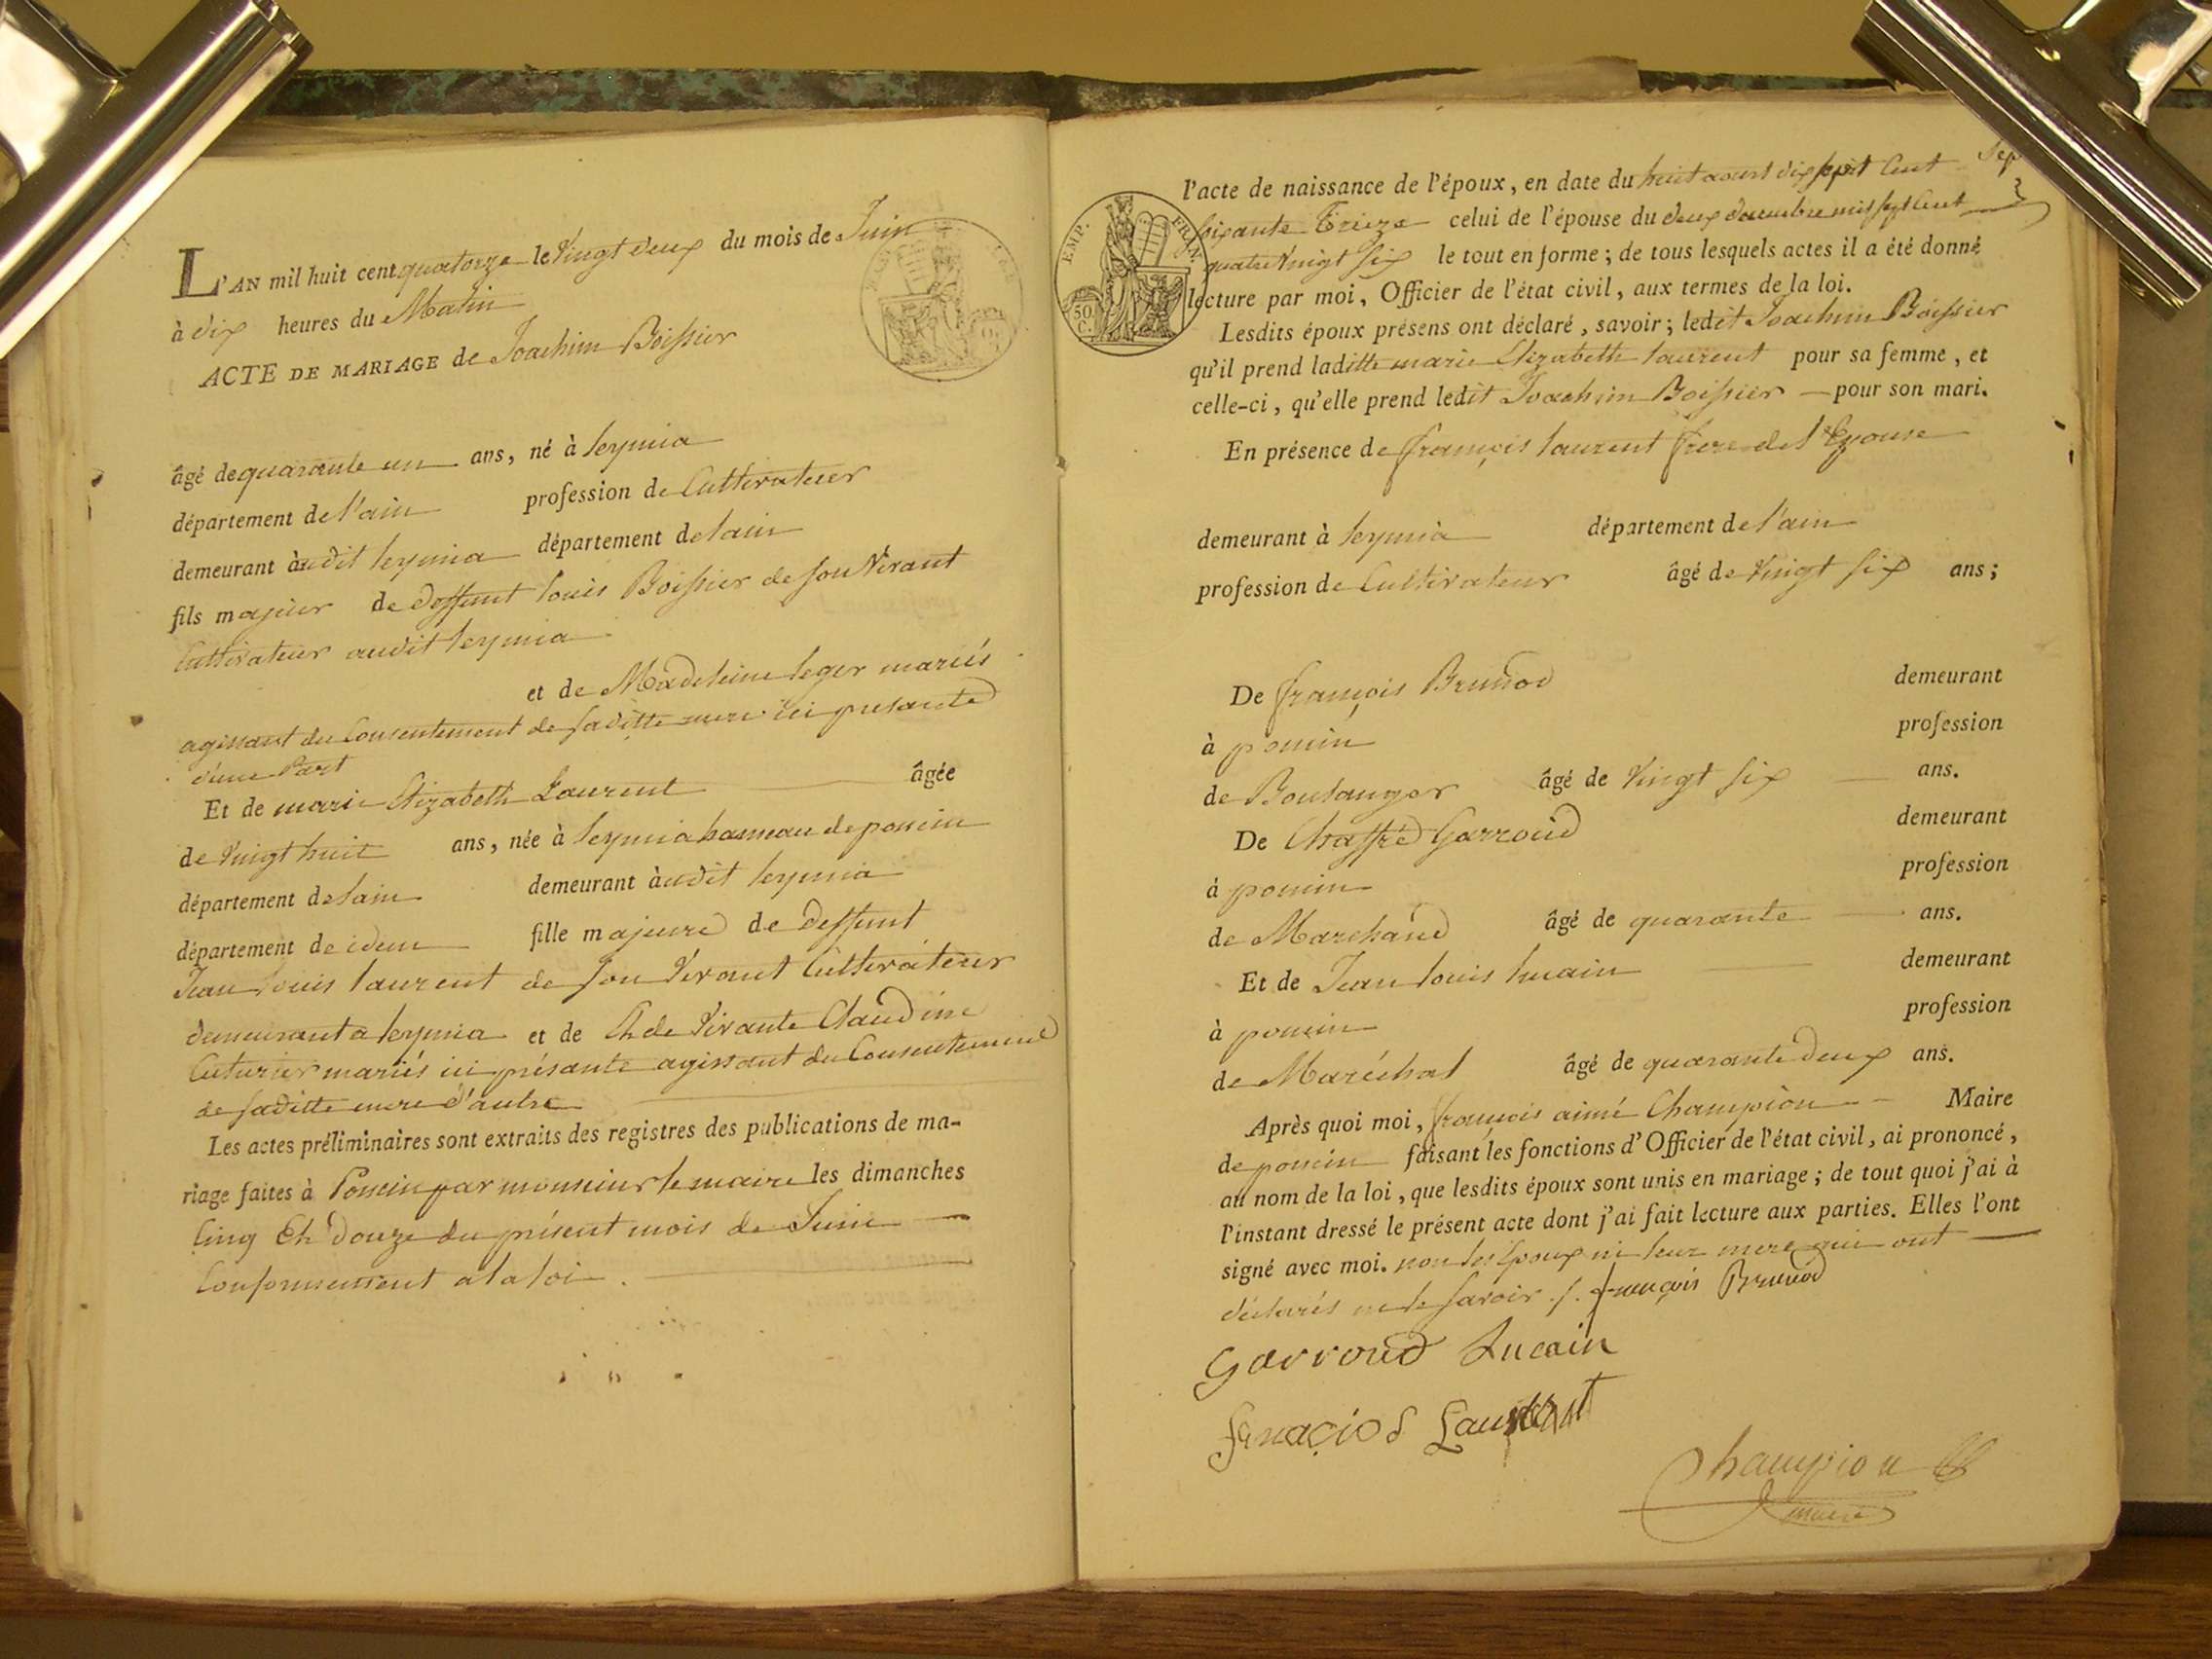 L'AN mil huit cent quatorze le Vingt deux du mois de Juin
à dix heures du Matin
ACTE DE MARIAGE de Joachim Boissier
âgé de quarante un ans, né à leymia
département de l'ain profession de Cultivateur
demeurant àudit leymia département de lain
fils majeur de deffunt louis Boissier de son Vivant
Cultivateur audit leymia
et de Madeleine leger mariés
agissant du Consentement de saditte mere ici presante
d'une Part
Et de marie Elizabeth Laurent âgée
de Vingt huit ans, née à leymia hameau de poncin
département de lain demeurant àudit leymia
département de idem fille majeure de deffunt
Jean louis laurent de son Vivant Cultivateur
demeurant a leymia et de Vivante Claudine
Cuturier mariés ici présante agissant du Consentement
de saditte mere d'autre
Les actes préliminaires sont extraits des registres des publications de ma-
riage faites à Poncin par monsieur le maire les dimanches
Cinq Et Douze du présent mois de Juin
Conformement a la loi.
EMP. FRAN.
50 C.
l'acte de naissance de l'époux, en date du huit aoust dix sept Cent
soixante Treize celui de l'épouse du deux decembre mil sept Cent
quatre Vingt six le tout en forme; de tous lesquels actes il a été donné
lecture par moi, Officier de l'état civil, aux termes de la loi.
Lesdits époux présens ont déclaré, savoir; ledit Joachim Boissier
qu'il prend laditte marie Elizabeth laurent pour sa femme, et
celle-ci, qu'elle prend ledit Joachim Boissier pour son mari.
En présence de françois laurent frere de l'Epouse
demeurant à leymià département de l'ain
profession de Cultivateur âgé de Vingt six ans;
De françois Brunod demeurant
à poncin profession
de Boulanger âgé de Vingt six ans.
De Chaffré Garroud demeurant
à poncin profession
de Marchand âgé de quarante ans.
Et de Jean louis lucain demeurant
à poncin profession
de Maréchal âgé de quarante deux ans.
Après quoi moi, françois aimé Champion Maire
de poncin faisant les fonctions d'Officier de l'état civil, ai prononcé,
au nom de la loi, que lesdits époux sont unis en mariage; de tout quoi j'ai à
l'instant dressé le présent acte dont j'ai fait lecture aux parties. Elles l'ont
signé avec moi. non les Epoux ni leur mere qui ont
déclarés ne le savoir ./. françois Brunod
Garroud Lucain
Laurent
Champion
maire